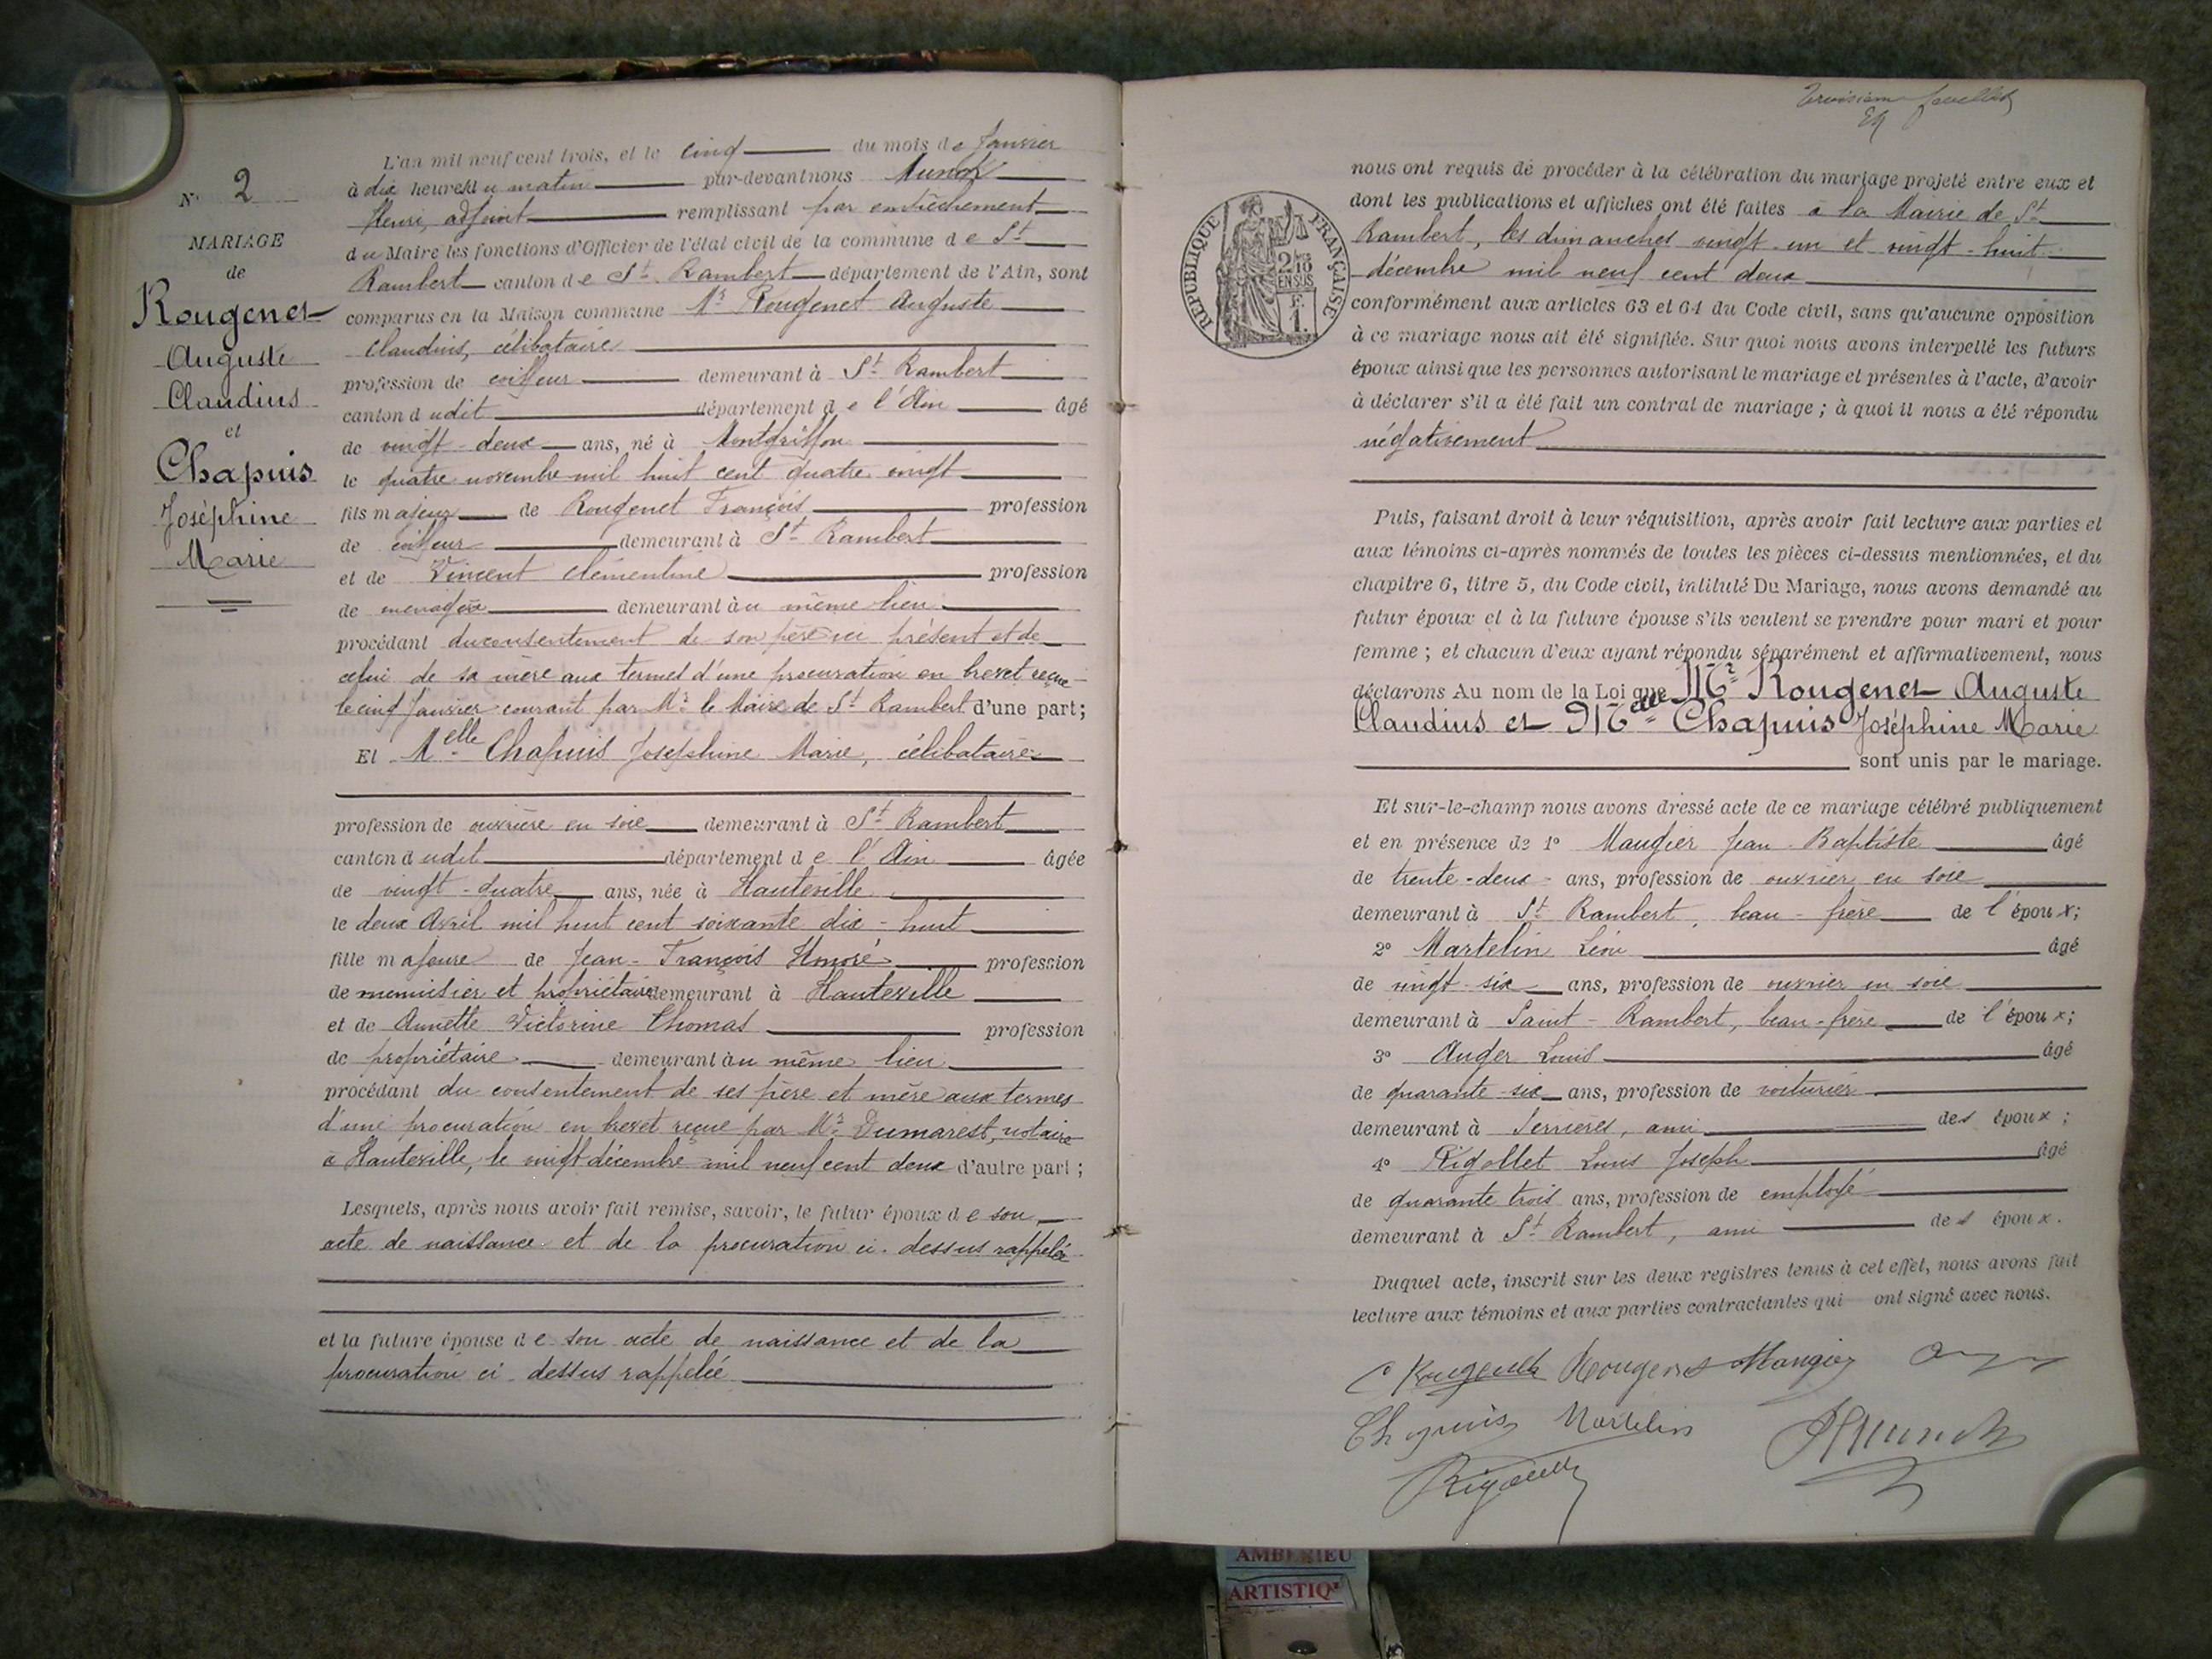 N° 2
MARIAGE
de
Rougenet
Auguste
Claudius
et
Chapuis
Joséphine
Marie
L'an mil neuf cent trois, et le cinq du mois de Janvier
à dix heures du matin par-devant nous Munch
Henri, adjoint remplissant par empêchement
du Maire les fonctions d'Officier de l'état civil de la commune de St
Rambert canton de St Rambert département de l'Ain, sont
comparus en la Maison commune Mr Rougenet Auguste
Claudius, célibataire
profession de coiffeur demeurant à St Rambert
canton dudit département de l'Ain âgé
de vingt-deux ans, né à Montgriffon
le quatre novembre mil huit cent quatre vingt
fils majeur de Rougenet François profession
de coiffeur demeurant à St Rambert
et de Vincent Clémentine profession
de ménagère demeurant au même lieu
procédant du consentement de son père ici présent et de
celui de sa mère aux termes d'une procuration en brevet reçue
le cinq Janvier courant par Mr le Maire de St Rambert d'une part;
Et Melle Chapuis Joséphine Marie, célibataire
profession de ouvrière en soie demeurant à St Rambert
canton dudit département de l'Ain âgée
de vingt-quatre ans, née à Hauteville
le deux Avril mil huit cent soixante dix-huit
fille majeure de Jean-François Honoré profession
de menuisier et propriétaire demeurant à Hauteville
et de Annette Victorine Thomas profession
de propriétaire demeurant au même lieu
procédant du consentement de ses père et mère aux termes
d'une procuration en brevet reçue par Mr Dumarest, notaire
à Hauteville, le vingt décembre mil neuf cent deux d'autre part;
Lesquels, après nous avoir fait remise, savoir, le futur époux de son
acte de naissance et de la procuration ci-dessus rappelée
et la future épouse de son acte de naissance et de la
procuration ci-dessus rappelée
troisième feuillet
RÉPUBLIQUE FRANÇAISE
2/10
EN SUS
F.
1.
nous ont requis de procéder à la célébration du mariage projeté entre eux et
dont les publications et affiches ont été faites à la Mairie de St
Rambert, les dimanches vingt-un et vingt-huit
décembre mil neuf cent deux
conformément aux articles 63 et 64 du Code civil, sans qu'aucune opposition
à ce mariage nous ait été signifiée. Sur quoi nous avons interpellé les futurs
époux ainsi que les personnes autorisant le mariage et présentes à l'acte, d'avoir
à déclarer s'il a été fait un contrat de mariage; à quoi il nous a été répondu
négativement
Puis, faisant droit à leur réquisition, après avoir fait lecture aux parties et
aux témoins ci-après nommés de toutes les pièces ci-dessus mentionnées, et du
chapitre 6, titre 5, du Code civil, intitulé Du Mariage, nous avons demandé au
futur époux et à la future épouse s'ils veulent se prendre pour mari et pour
femme; et chacun d'eux ayant répondu séparément et affirmativement, nous
déclarons Au nom de la Loi que Mr Rougenet Auguste
Claudius et Melle Chapuis Joséphine Marie
sont unis par le mariage.
Et sur-le-champ nous avons dressé acte de ce mariage célébré publiquement
et en présence de 1° Maugier Jean-Baptiste âgé
de trente-deux ans, profession de ouvrier en soie
demeurant à St Rambert, beau-frère de l'époux;
2° Martelin Léon âgé
de vingt-six ans, profession de ouvrier en soie
demeurant à Saint-Rambert, beau-frère de l'époux;
3° Auger Louis âgé
de quarante-six ans, profession de voiturier
demeurant à Serrières, ami des époux;
4° Rigollet Louis Joseph âgé
de quarante trois ans, profession de employé
demeurant à St Rambert, ami des époux.
Duquel acte, inscrit sur les deux registres tenus à cet effet, nous avons fait
lecture aux témoins et aux parties contractantes qui ont signé avec nous.
C Rougenet Rougenet Maugier
Chapuis Martelin HMunch
Rigollet
AMBERIEU
ARTISTIQ